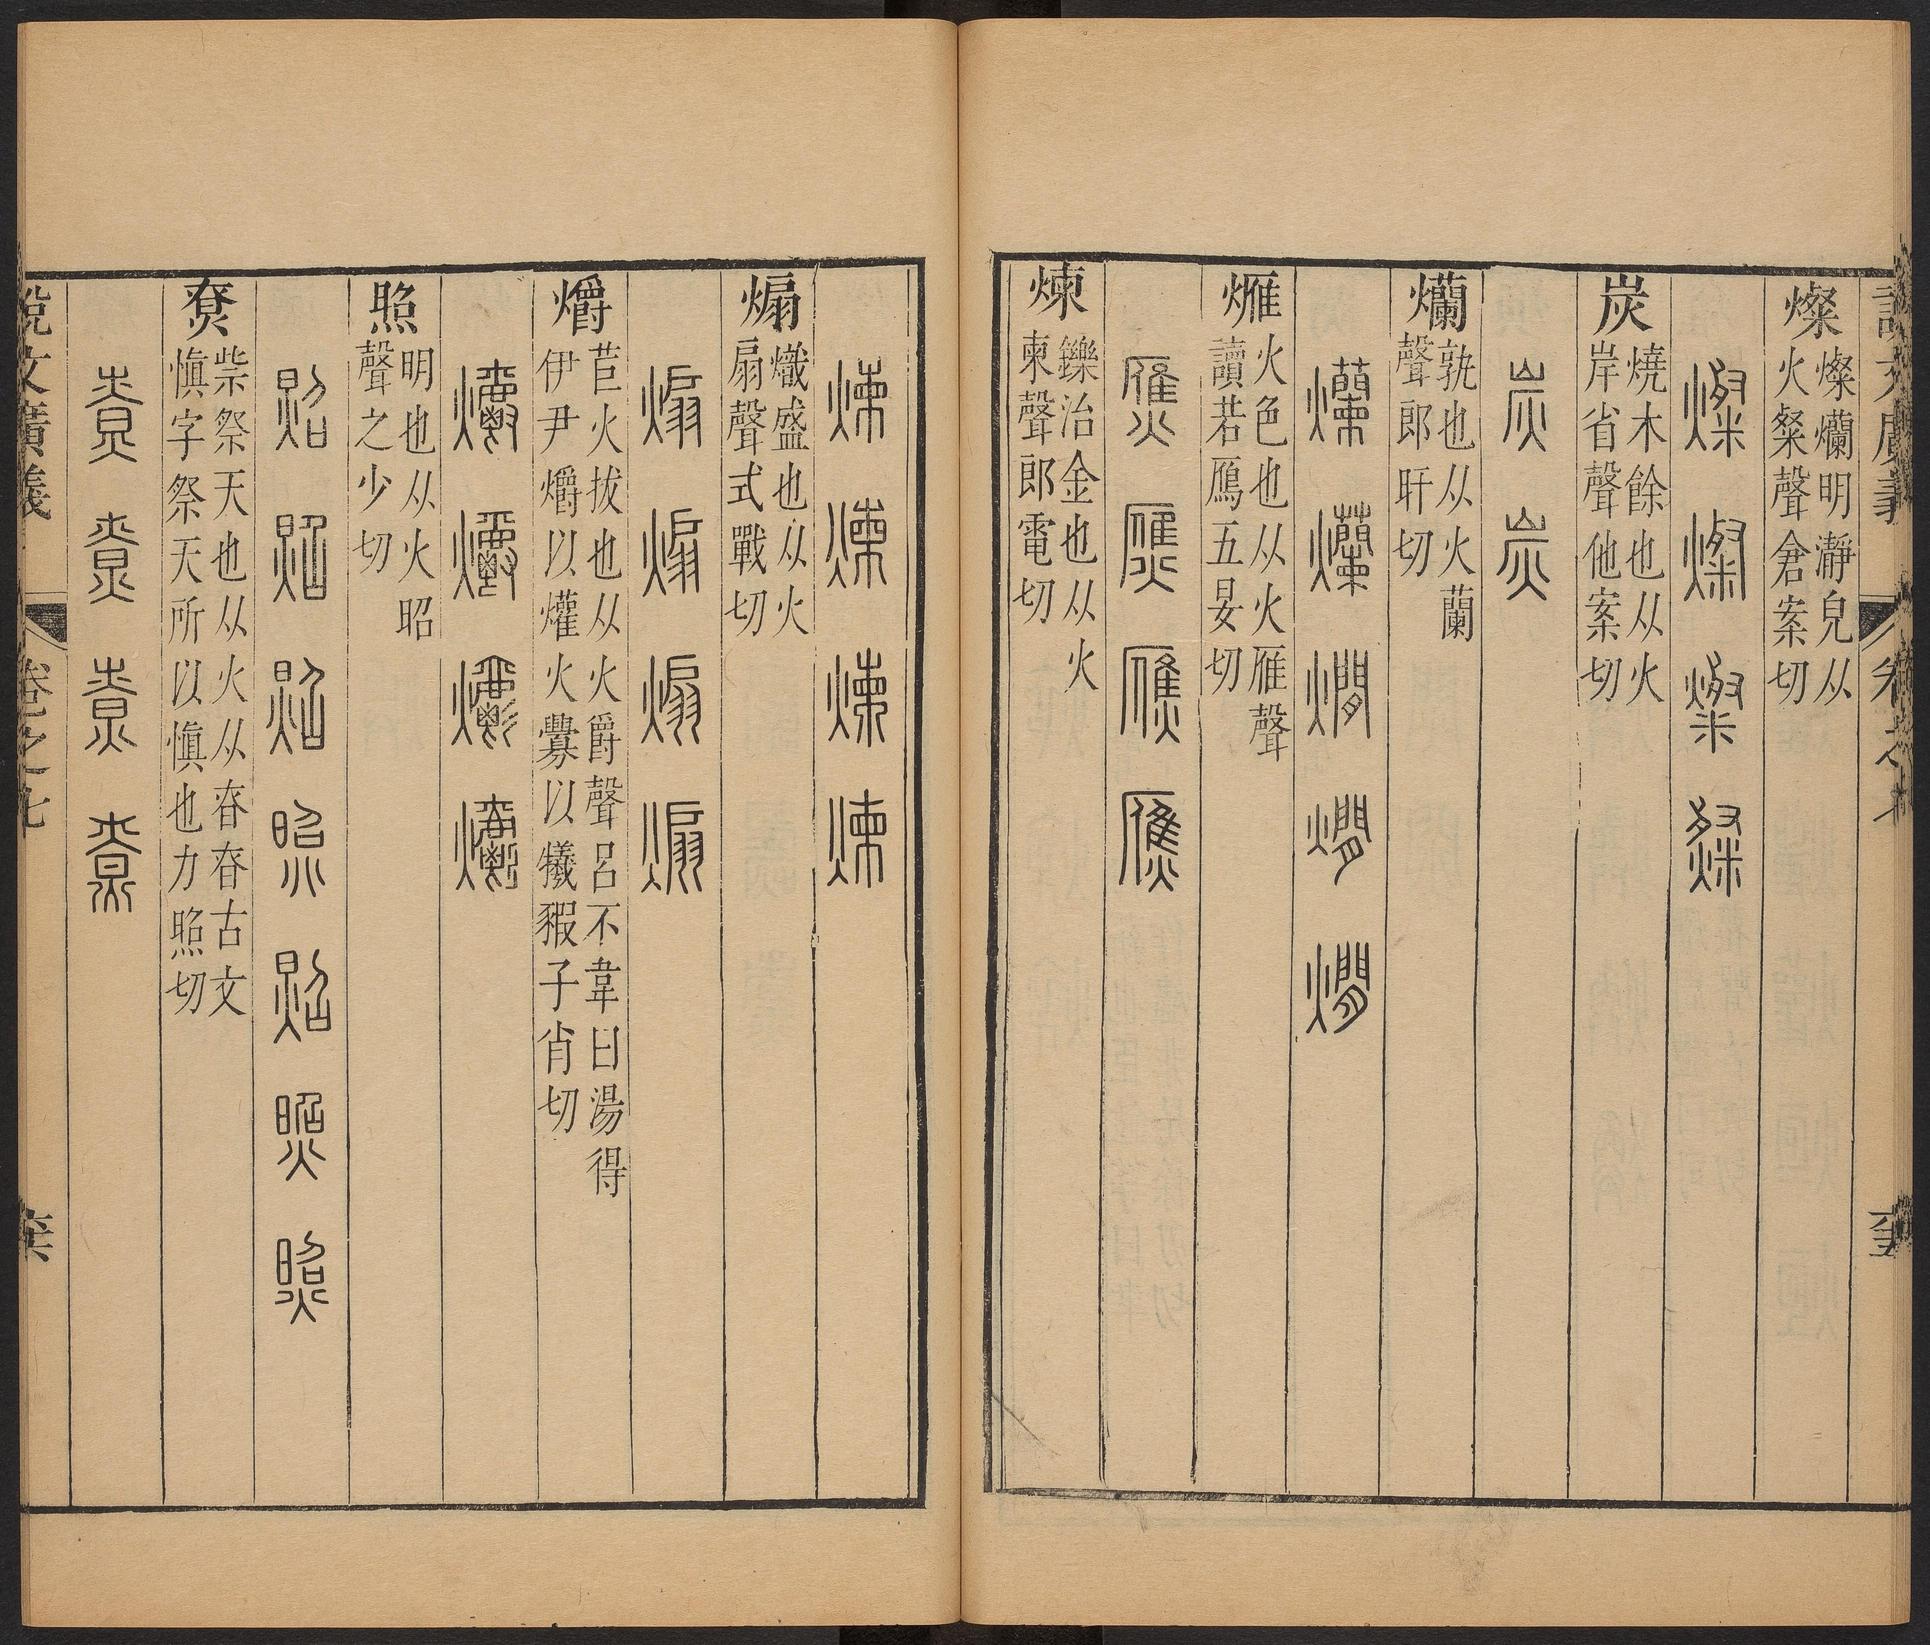 說文廣義
卷之七
燦 燦爛明瀞皃从
火粲聲倉案切
燦 燦 燦 燦
炭 燒木餘也从火
岸省聲他案切
炭 炭
爛 孰也从火蘭
聲郎旰切
爛 爛 燗 燗 燗
㷼 火色也从火雁聲
讀若鴈五晏切
㷼 㷼 㷼 㷼
煉 鑠治金也从火
柬聲郎電切
煉 煉 煉 煉
煽 熾盛也从火
扇聲式戰切
煽 煽 煽 煽
爝 苣火拔也从火爵聲呂不韋曰湯得
伊尹爝以爟火釁以犧豭子肖切
爝 爝 爝 爝
照 明也从火昭
聲之少切
照 照 照 照 照 照 照
尞 祡祭天也从火从昚昚古文
愼字祭天所以愼也力照切
尞 尞 尞 尞
說文廣義
卷之七